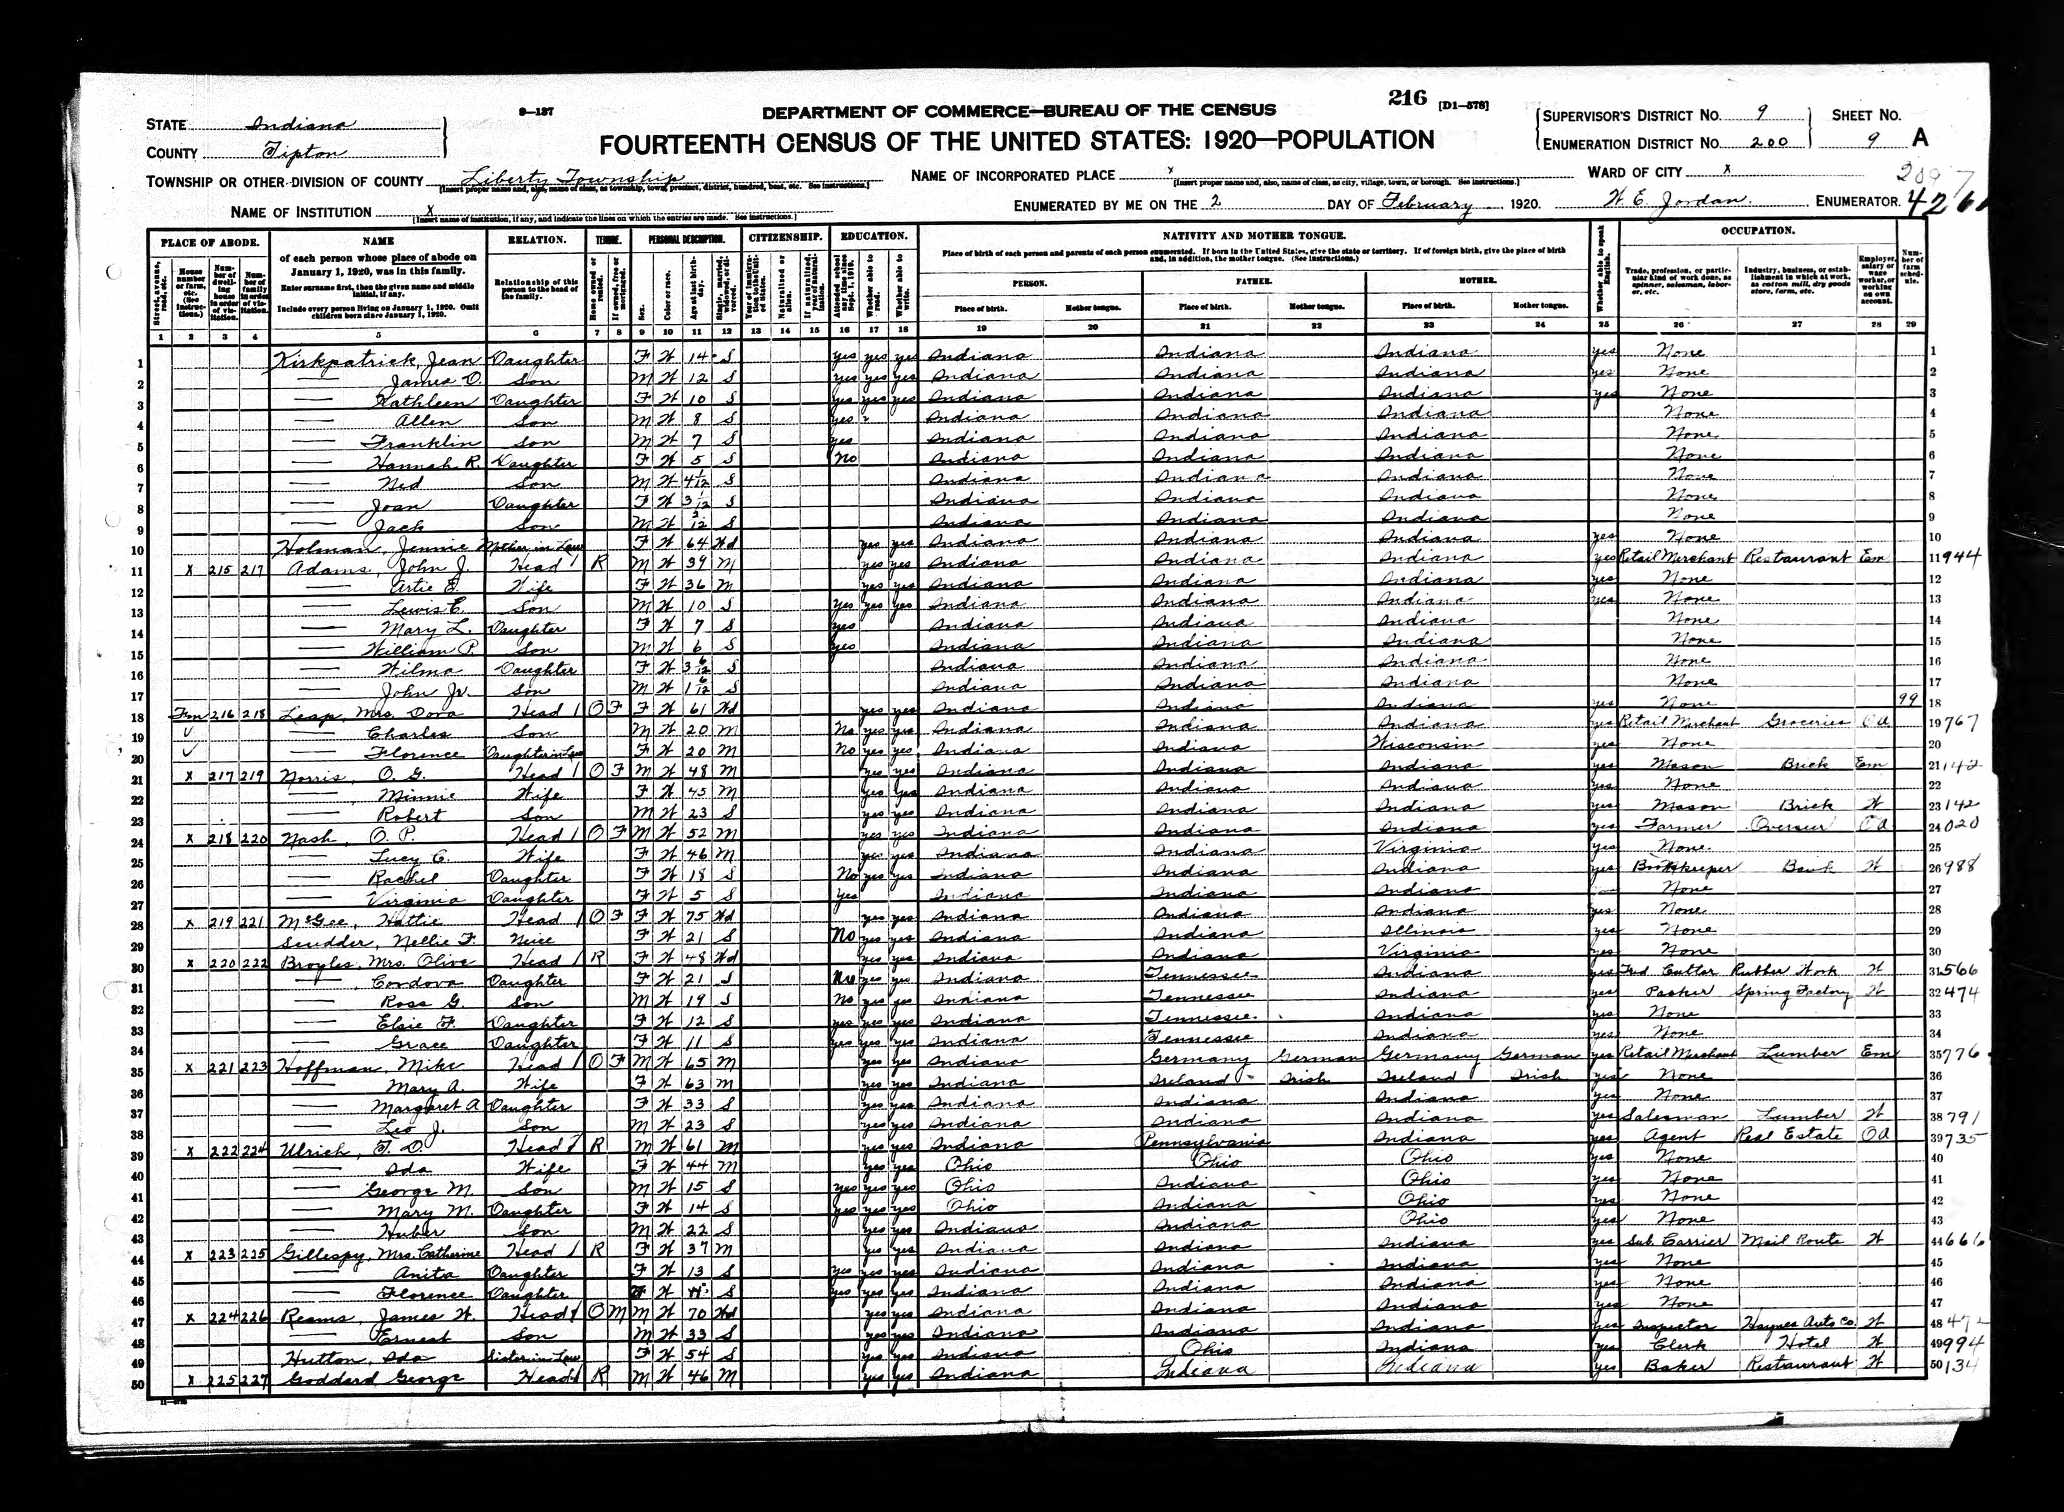 9—137
DEPARTMENT OF COMMERCE—BUREAU OF THE CENSUS
216 [D1—578]
STATE Indiana
COUNTY Tipton
FOURTEENTH CENSUS OF THE UNITED STATES: 1920—POPULATION
SUPERVISOR'S DISTRICT NO. 9 SHEET NO.
ENUMERATION DISTRICT NO. 200 9 A
TOWNSHIP OR OTHER DIVISION OF COUNTY Liberty Township NAME OF INCORPORATED PLACE x WARD OF CITY x
NAME OF INSTITUTION X ENUMERATED BY ME ON THE 2 DAY OF February 1920. W. E. Jordan ENUMERATOR.
[Insert name of institution, if any, and indicate the lines on which the entries are made. See instructions.]
PLACE OF ABODE. NAME RELATION. TENURE. PERSONAL DESCRIPTION. CITIZENSHIP. EDUCATION. NATIVITY AND MOTHER TONGUE. OCCUPATION.
of each person whose place of abode on January 1, 1920, was in this family.
Enter surname first, then the given name and middle initial, if any.
Include every person living on January 1, 1920. Omit children born since January 1, 1920.
Relationship of this person to the head of the family.
Place of birth of each person and parents of each person enumerated. If born in the United States, give the state or territory. If of foreign birth, give the place of birth and, in addition, the mother tongue. (See instructions.)
PERSON. FATHER. MOTHER.
Place of birth. Mother tongue. Place of birth. Mother tongue. Place of birth. Mother tongue.
1 2 3 4 5 6 7 8 9 10 11 12 13 14 15 16 17 18 19 20 21 22 23 24 25 26 27 28 29
1 Kirkpatrick, Jean Daughter F W 14 S yes yes yes Indiana Indiana Indiana yes None 1
2 — James O. Son M W 12 S yes yes yes Indiana Indiana Indiana yes None 2
3 — Kathleen Daughter F W 10 S yes yes yes Indiana Indiana Indiana yes None 3
4 — Allen Son M W 8 S yes Indiana Indiana Indiana None 4
5 — Franklin Son M W 7 S yes Indiana Indiana Indiana None 5
6 — Hannah R. Daughter F W 5 S No Indiana Indiana Indiana None 6
7 — Ned Son M W 4 1/12 S Indiana Indiana Indiana None 7
8 — Joan Daughter F W 3 1/12 S Indiana Indiana Indiana None 8
9 — Jack Son M W 3/12 S Indiana Indiana Indiana None 9
10 Holman, Jennie Mother in Law F W 64 Wd yes yes Indiana Indiana Indiana yes None 10
11 x 215 217 Adams, John J. Head 1 R M W 39 M yes yes Indiana Indiana Indiana yes Retail Merchant Restaurant Em 11 944
12 — Artie E. Wife F W 36 M yes yes Indiana Indiana Indiana yes None 12
13 — Lewis E. Son M W 10 S yes yes yes Indiana Indiana Indiana yes None 13
14 — Mary L. Daughter F W 7 S yes Indiana Indiana Indiana None 14
15 — William P. Son M W 6 S yes Indiana Indiana Indiana None 15
16 — Wilma Daughter F W 3 6/12 S Indiana Indiana Indiana None 16
17 — John Jr. Son M W 1 6/12 S Indiana Indiana Indiana None 17
18 Fm 216 218 Leap, Mrs. Dova Head 1 O F F W 61 Wd yes yes Indiana Indiana Indiana yes None 99 18
19 — Charles Son M W 20 M No yes yes Indiana Indiana Indiana yes Retail Merchant Groceries OA 19 767
20 — Florence Daughter in Law F W 20 M No yes yes Indiana Indiana Wisconsin yes None 20
21 x 217 219 Norris, O. G. Head 1 O F M W 48 M yes yes Indiana Indiana Indiana yes Mason Brick Em 21 142
22 — Minnie Wife F W 45 M yes yes Indiana Indiana Indiana yes None 22
23 — Robert Son M W 23 S yes yes Indiana Indiana Indiana yes Mason Brick W 23 142
24 x 218 220 Nash, O. P. Head 1 O F M W 52 M yes yes Indiana Indiana Indiana yes Farmer Overseer OA 24 020
25 — Lucy C. Wife F W 46 M yes yes Indiana Indiana Virginia yes None 25
26 — Rachel Daughter F W 18 S No yes yes Indiana Indiana Indiana yes Bookkeeper Bank W 26 988
27 — Virginia Daughter F W 5 S Yes Indiana Indiana Indiana None 27
28 x 219 221 McGee, Hattie Head 1 O F F W 75 Wd yes yes Indiana Indiana Indiana yes None 28
29 Scudder, Nellie F. Neice F W 21 S No yes yes Indiana Indiana Illinois yes None 29
30 x 220 222 Broyles, Mrs. Olive Head 1 R F W 48 Wd yes yes Indiana Indiana Virginia yes None 30
31 — Cordova Daughter F W 21 S No yes yes Indiana Tennessee Indiana yes Cutter Rubber Work W 31 566
32 — Ross G. Son M W 19 S No yes yes Indiana Tennessee Indiana yes Packer Spring Factory W 32 474
33 — Elsie F. Daughter F W 12 S yes yes yes Indiana Tennessee Indiana yes None 33
34 — Grace Daughter F W 11 S yes yes yes Indiana Tennessee Indiana yes None 34
35 x 221 223 Hoffman, Mike Head 1 O F M W 65 M yes yes Indiana Germany German Germany German yes Retail Merchant Lumber Em 35 776
36 — Mary A. Wife F W 63 M yes yes Indiana Ireland Irish Ireland Irish yes None 36
37 — Margaret A Daughter F W 33 S yes yes Indiana Indiana Indiana yes None 37
38 — Leo J. Son M W 23 S yes yes Indiana Indiana Indiana yes Salesman Lumber W 38 791
39 x 222 224 Ulrich, F. D. Head 1 R M W 61 M yes yes Indiana Pennsylvania Indiana yes Agent Real Estate OA 39 735
40 — Ida Wife F W 44 M yes yes Ohio Ohio Ohio yes None 40
41 — George M. Son M W 15 S yes yes yes Ohio Indiana Ohio yes None 41
42 — Mary M. Daughter F W 14 S yes yes yes Ohio Indiana Ohio yes None 42
43 — Huber Son M W 22 S yes yes Indiana Indiana Ohio yes None 43
44 x 223 225 Gillespy, Mrs. Catherine Head 1 R F W 37 M yes yes Indiana Indiana Indiana yes Sub. Carrier Mail Route W 44 666
45 — Anita Daughter F W 13 S yes yes yes Indiana Indiana Indiana yes None 45
46 — Florence Daughter F W 11 S yes yes yes Indiana Indiana Indiana yes None 46
47 x 224 226 Reams, James W. Head 1 O M M W 70 Wd yes yes Indiana Indiana Indiana yes None 47
48 — Ernest Son M W 33 S yes yes Indiana Indiana Indiana yes Inspector Haynes Auto Co W 48
49 Hutton, Ida Sister in Law F W 54 S yes yes Indiana Ohio Indiana yes Clerk Hotel W 49 994
50 x 225 227 Goddard George Head 1 R M W 46 M yes yes Indiana Indiana Indiana yes Baker Restaurant W 50 134